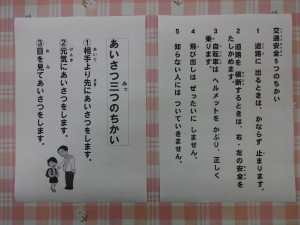 交通安全5つのちかい
1 道路に 出るときは、かならず 止まります。
2 道路を 横断するときは、右・左の 安全を
たしかめます。
3 自転車は ヘルメットを かぶり、正しく
乗ります。
4 飛び出しは ぜったいに しません。
5 知らない人には ついていきません。
あいさつ三つのちかい
①相手より先にあいさつをします。
②元気にあいさつをします。
③目を見てあいさつをします。